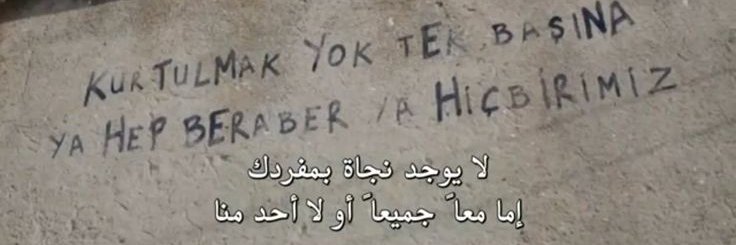 KURTULMAK YOK TEK BAŞINA
YA HEP BERABER YA HİÇBİRİMİZ
لا يوجد نجاة بمفردك
إما معاً جميعاً أو لا أحد منا